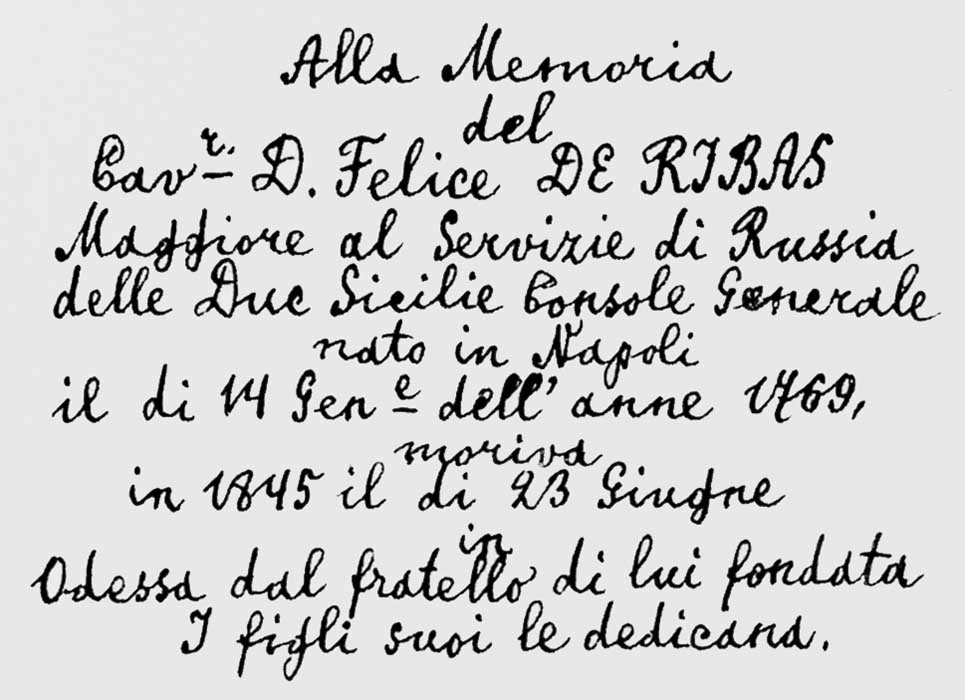 Alla Memoria
del
Cav.r D. Felice DE RIBAS
Maggiore al Servizie di Russia
delle Duc Sicilie Console Generale
nato in Napoli
il di 14 Gen e dell' anne 1769,
moriva
in 1845 il di 23 Giugne
in
Odessa dal fratello di lui fondata
I figli suoi le dedicana.